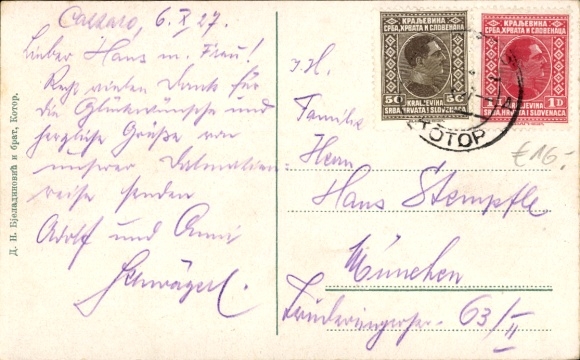 Cattaro, 6. X 27.
Lieber Hans m. Frau!
Recht vielen Dank für
die Glückwünsche und
herzliche Grüße von
unserer Dalmatien
reise senden
Adolf und Anni
Д. Н. Бјеладиновић и брат, Котор.
КРАЉЕВИНА
СРБА, ХРВАТА И СЛОВЕНАЦА
50 50
KRALJEVINA
SRBA, HRVATA I SLOVENACA
КРАЉЕВИНА
СРБА, ХРВАТА И СЛОВЕНАЦА
1 1D
KRALJEVINA
SRBA, HRVATA I SLOVENACA
KOTOR
€16.-
Familie
Herrn
Hans Stempfle
München
63/II